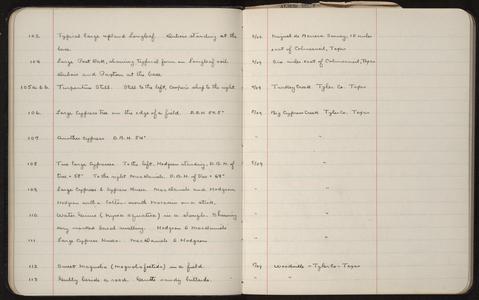 103 Typical large upland Longleaf. Dubois standing at the
base
104 Large Post Oak, showing typical form on Longleaf soil
Dubois and Paxton at the base
105 a & b Turpentine Still. Still to the left, Cooper's shop to the right
106 Large Cypress tree on the edge of a field. D.B.H. 54.5"
107 Another Cypress D.B.H. 54"
108 Two large Cypresses. To the left, Hodgson standing, D.B.H. of
tree = 58". To the right MacDaniels. D.B.H. of tree = 69"
109 Large Cypress & Cypress Knees. MacDaniels and Hodgson
Hodgson with a Cotton-mouth Moccasin on a stick.
110 Water Gums (Nyssa aquatica) in a slough. Showing
very marked basal swelling. Hodgson & MacDaniels
111 Large Cypress Knees. MacDaniels & Hodgson
112 Sweet Magnolia (Magnolia foetida) in a field.
113 Gently beside a road.
Survey, 10 miles
east of Colmesneil, Texas
Six miles east of Colmesneil, Texas
Turkey Creek Tyler Co. Texas
Big Cypress Creek Tyler Co., Texas
" "
" "
" "
" "
" "
Woodville - Tyler Co - Texas
" "